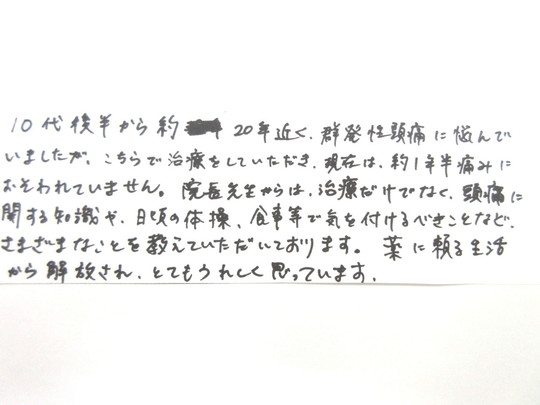 10代後半から約 20年近く、群発性頭痛に悩んで
いましたが、こちらで治療をしていただき、現在は、約1年半痛みに
おそわれていません。院長先生からは、治療だけでなく、頭痛に
関する知識や、日頃の体操、食事等で気を付けるべきことなど、
さまざまなことを教えていただいております。薬に頼る生活
から解放され、とてもうれしく思っています。